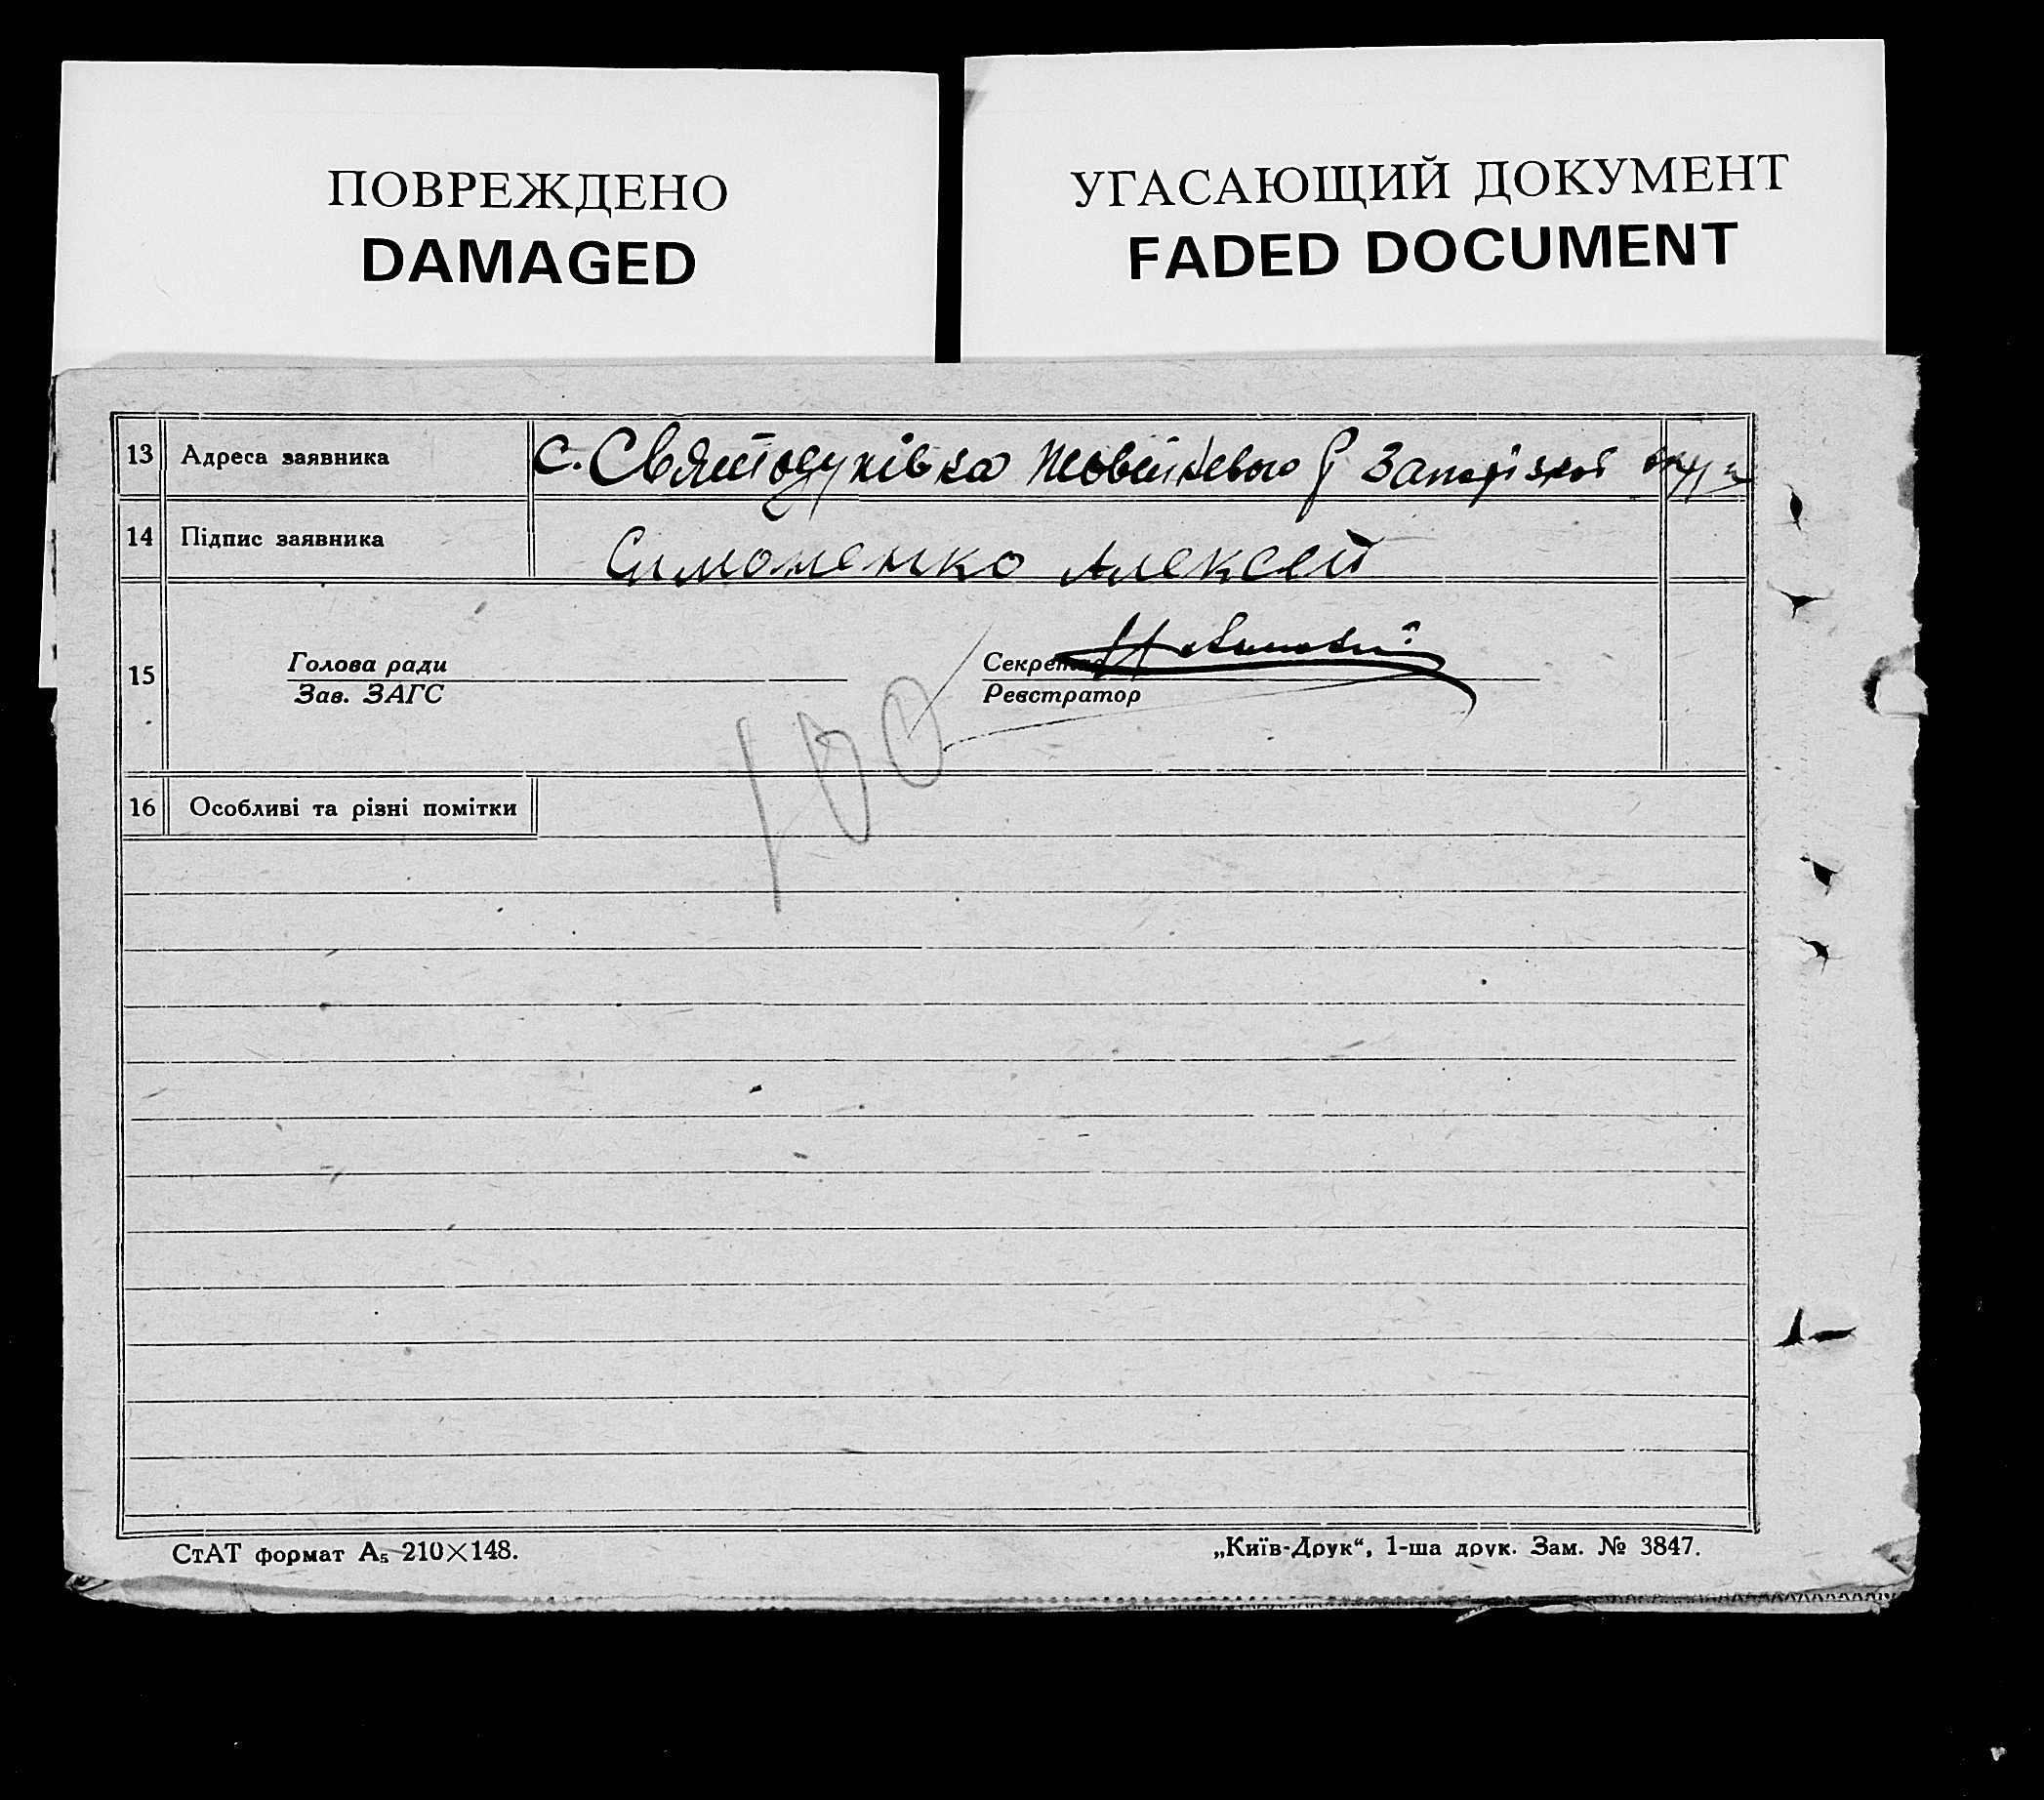 ПОВРЕЖДЕНО
DAMAGED
УГАСАЮЩИЙ ДОКУМЕНТ
FADED DOCUMENT
13 Адреса заявника с. Святодухівка
14 Підпис заявника Симоненко Алексей
15 Голова ради Секретар
Зав. ЗАГС Реєстратор
100
16 Особливі та різні помітки
СтАТ формат А₅ 210×148. „Київ-Друк“, 1-ша друк. Зам. № 3847.